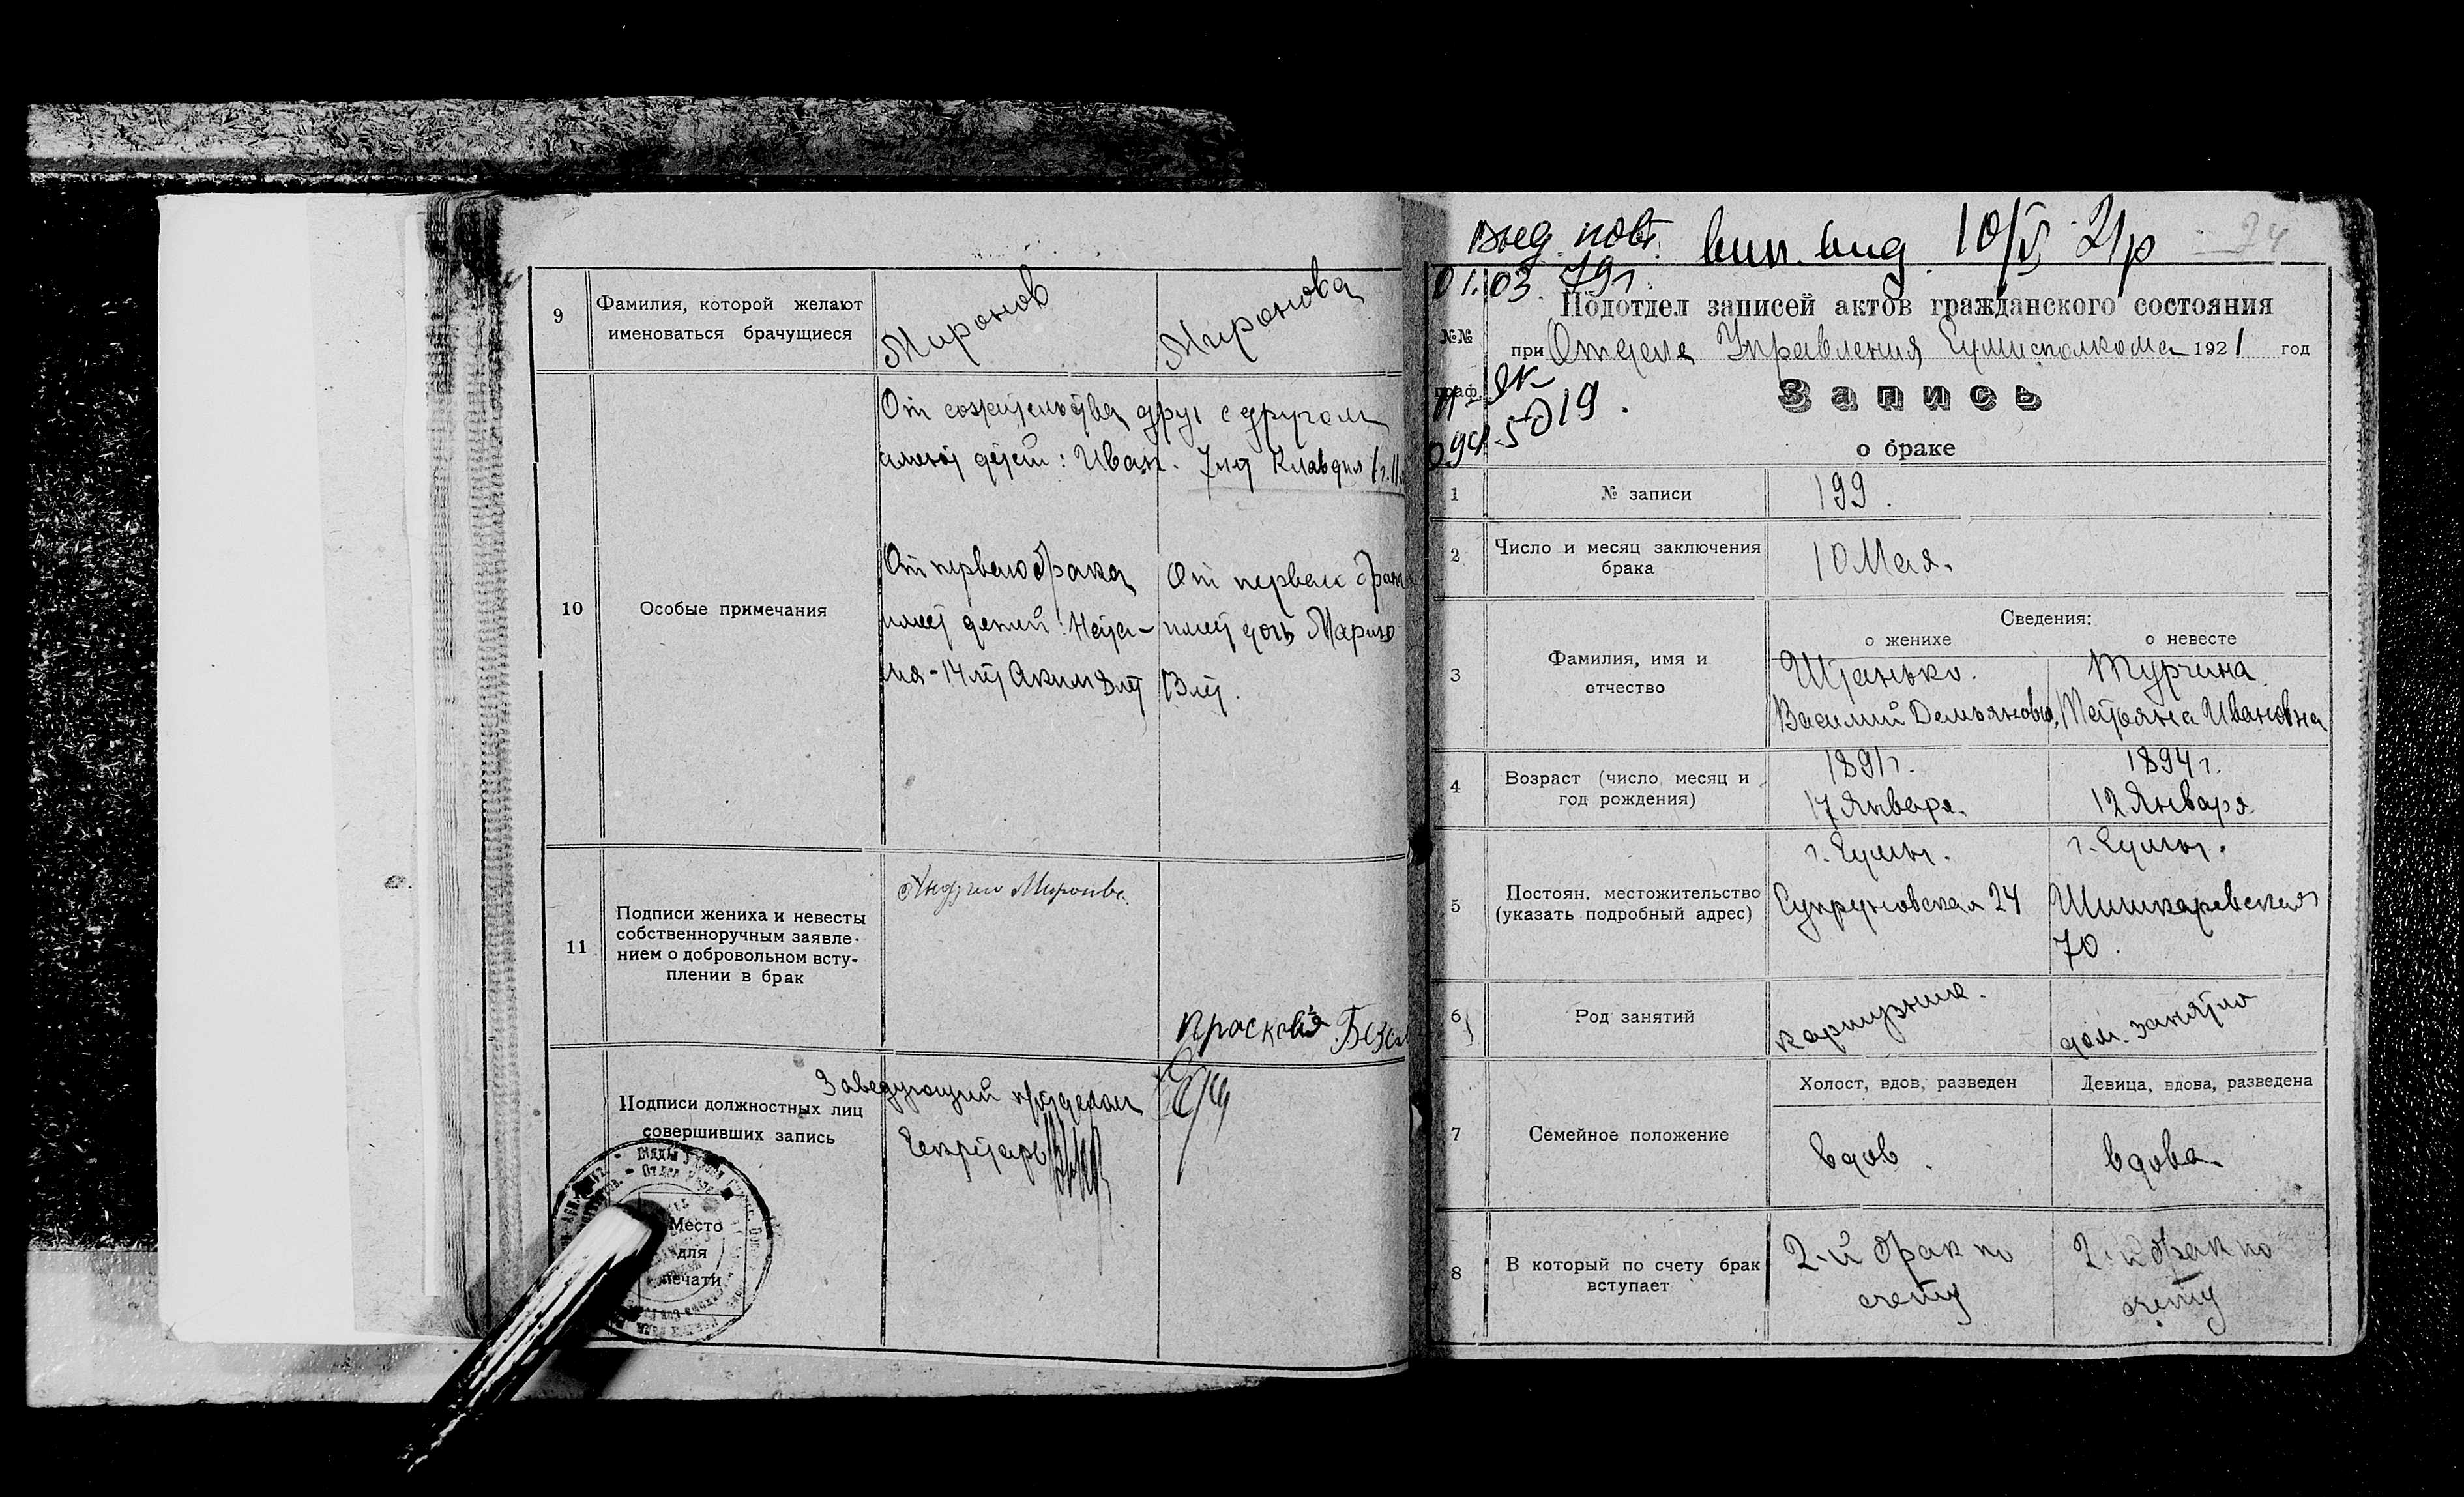 9
Фамилия, которой желают
именоваться брачущиеся
Миронов
Миронова
10
Особые примечания
От сожительства друг с другом
имеют детей: Иван. 7 лет Клавдия
От первого брака
имеет детей: Ната-
лия - 14 лет Аким 8 лет
От первого брака
имеет дочь Марию
13 лет.
11
Подписи жениха и невесты
собственноручным заявле-
нием о добровольном всту-
плении в брак
Андрей Миронов
Прасковия
Подписи должностных лиц
совершивших запись
Заведующий п/отделом
Секретарь
Место
для
печати
выд. повт. вип. вид. 10/V 21р
01.03.79г.
Подотдел записей актов гражданского состояния
№№
при Отделе Управления Сумисполкома 1921 год
граф
Запись
5019.
о браке
1
№ записи
199.
2
Число и месяц заключения
брака
10 Мая.
3
Фамилия, имя и
отчество
Сведения:
о женихе
о невесте
Штанько.
Василий Демьянович,
Турчина.
Татьяна Ивановна
4
Возраст (число, месяц и
год рождения)
1891 г.
17 Января.
1894 г.
12 Января
5
Постоян. местожительство
(указать подробный адрес)
г. Сумы.
Супруновская 24
г. Сумы.
Шишкаревская
70.
6
Род занятий
картузник.
дом. занятию
7
Семейное положение
Холост, вдов, разведен
Девица, вдова, разведена
вдов.
вдова
8
В который по счету брак
вступает
2-й брак по
счету
2-й брак по
счету